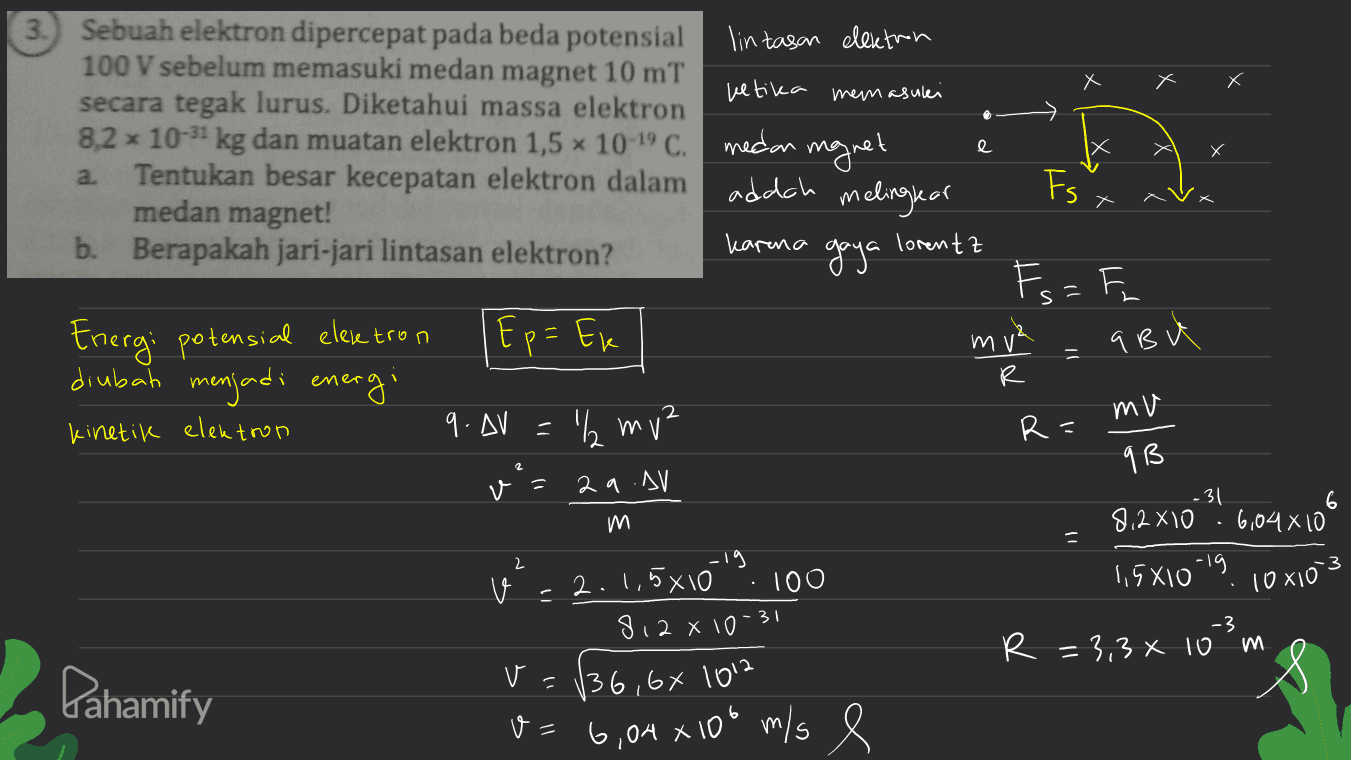 3. Sebuah elektron dipercepat pada beda potensial
100 V sebelum memasuki medan magnet 10 mT
secara tegak lurus. Diketahui massa elektron
8,2 × 10⁻³¹ kg dan muatan elektron 1,5 × 10⁻¹⁹ C.
a. Tentukan besar kecepatan elektron dalam
medan magnet!
b. Berapakah jari-jari lintasan elektron?
lintasan elektron
ketika memasuki
medan magnet
adalah melingkar
karena gaya lorentz
e
× × ×
× × ×
Fs × × ×
Energi potensial elektron
diubah menjadi energi
kinetik elektron
Ep = Ek
q. ΔV = 1/2 mv²
v² = 2q.ΔV / m
v² = 2. 1,5×10⁻¹⁹. 100 / 8,2 × 10⁻³¹
v = √36,6× 10¹²
v = 6,04 × 10⁶ m/s
Fs = FL
mv² / R = qBv
R = mv / qB
= 8,2×10⁻³¹. 6,04×10⁶ / 1,5×10⁻¹⁹. 10×10⁻³
R = 3,3 × 10⁻³ m
Pahamify